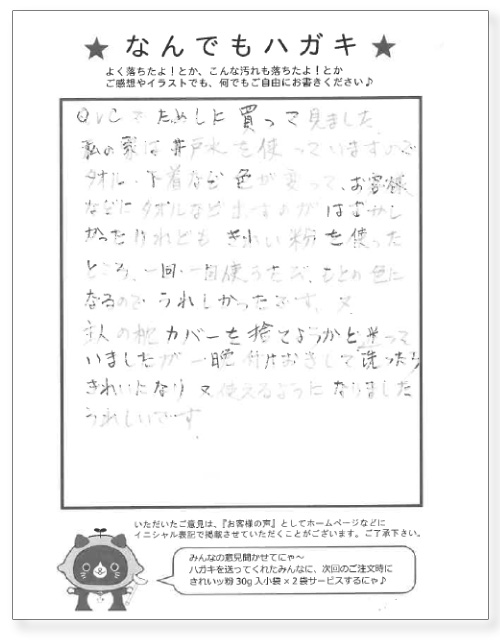 ★ なんでもハガキ ★
よく落ちたよ!とか、こんな汚れも落ちたよ!とか
ご感想やイラストでも、何でもご自由にお書きください♪
QVCでためしに買って見ました。
私の家は井戸水を使っていますので
タオル・下着など色が変って、お客様
などにタオルなど出すのがはずかし
かったけれどもきれい粉を使った
ところ、一回・一回使うたび、もとの色に
なるので うれしかったです。又
主人の枕カバーを捨てようかと迷って
いましたが一晩付けおきして洗ったら
きれいになり 又使えるようになりました
うれしいです
いただいたご意見は、『お客様の声』としてホームページなどに
イニシャル表記で掲載させていただくことがございます。ご了承下さい。
みんなの意見聞かせてにゃ〜
ハガキを送ってくれたみんなに、次回のご注文時に
きれいッ粉 30g 入小袋 × 2 袋サービスするにゃ♪